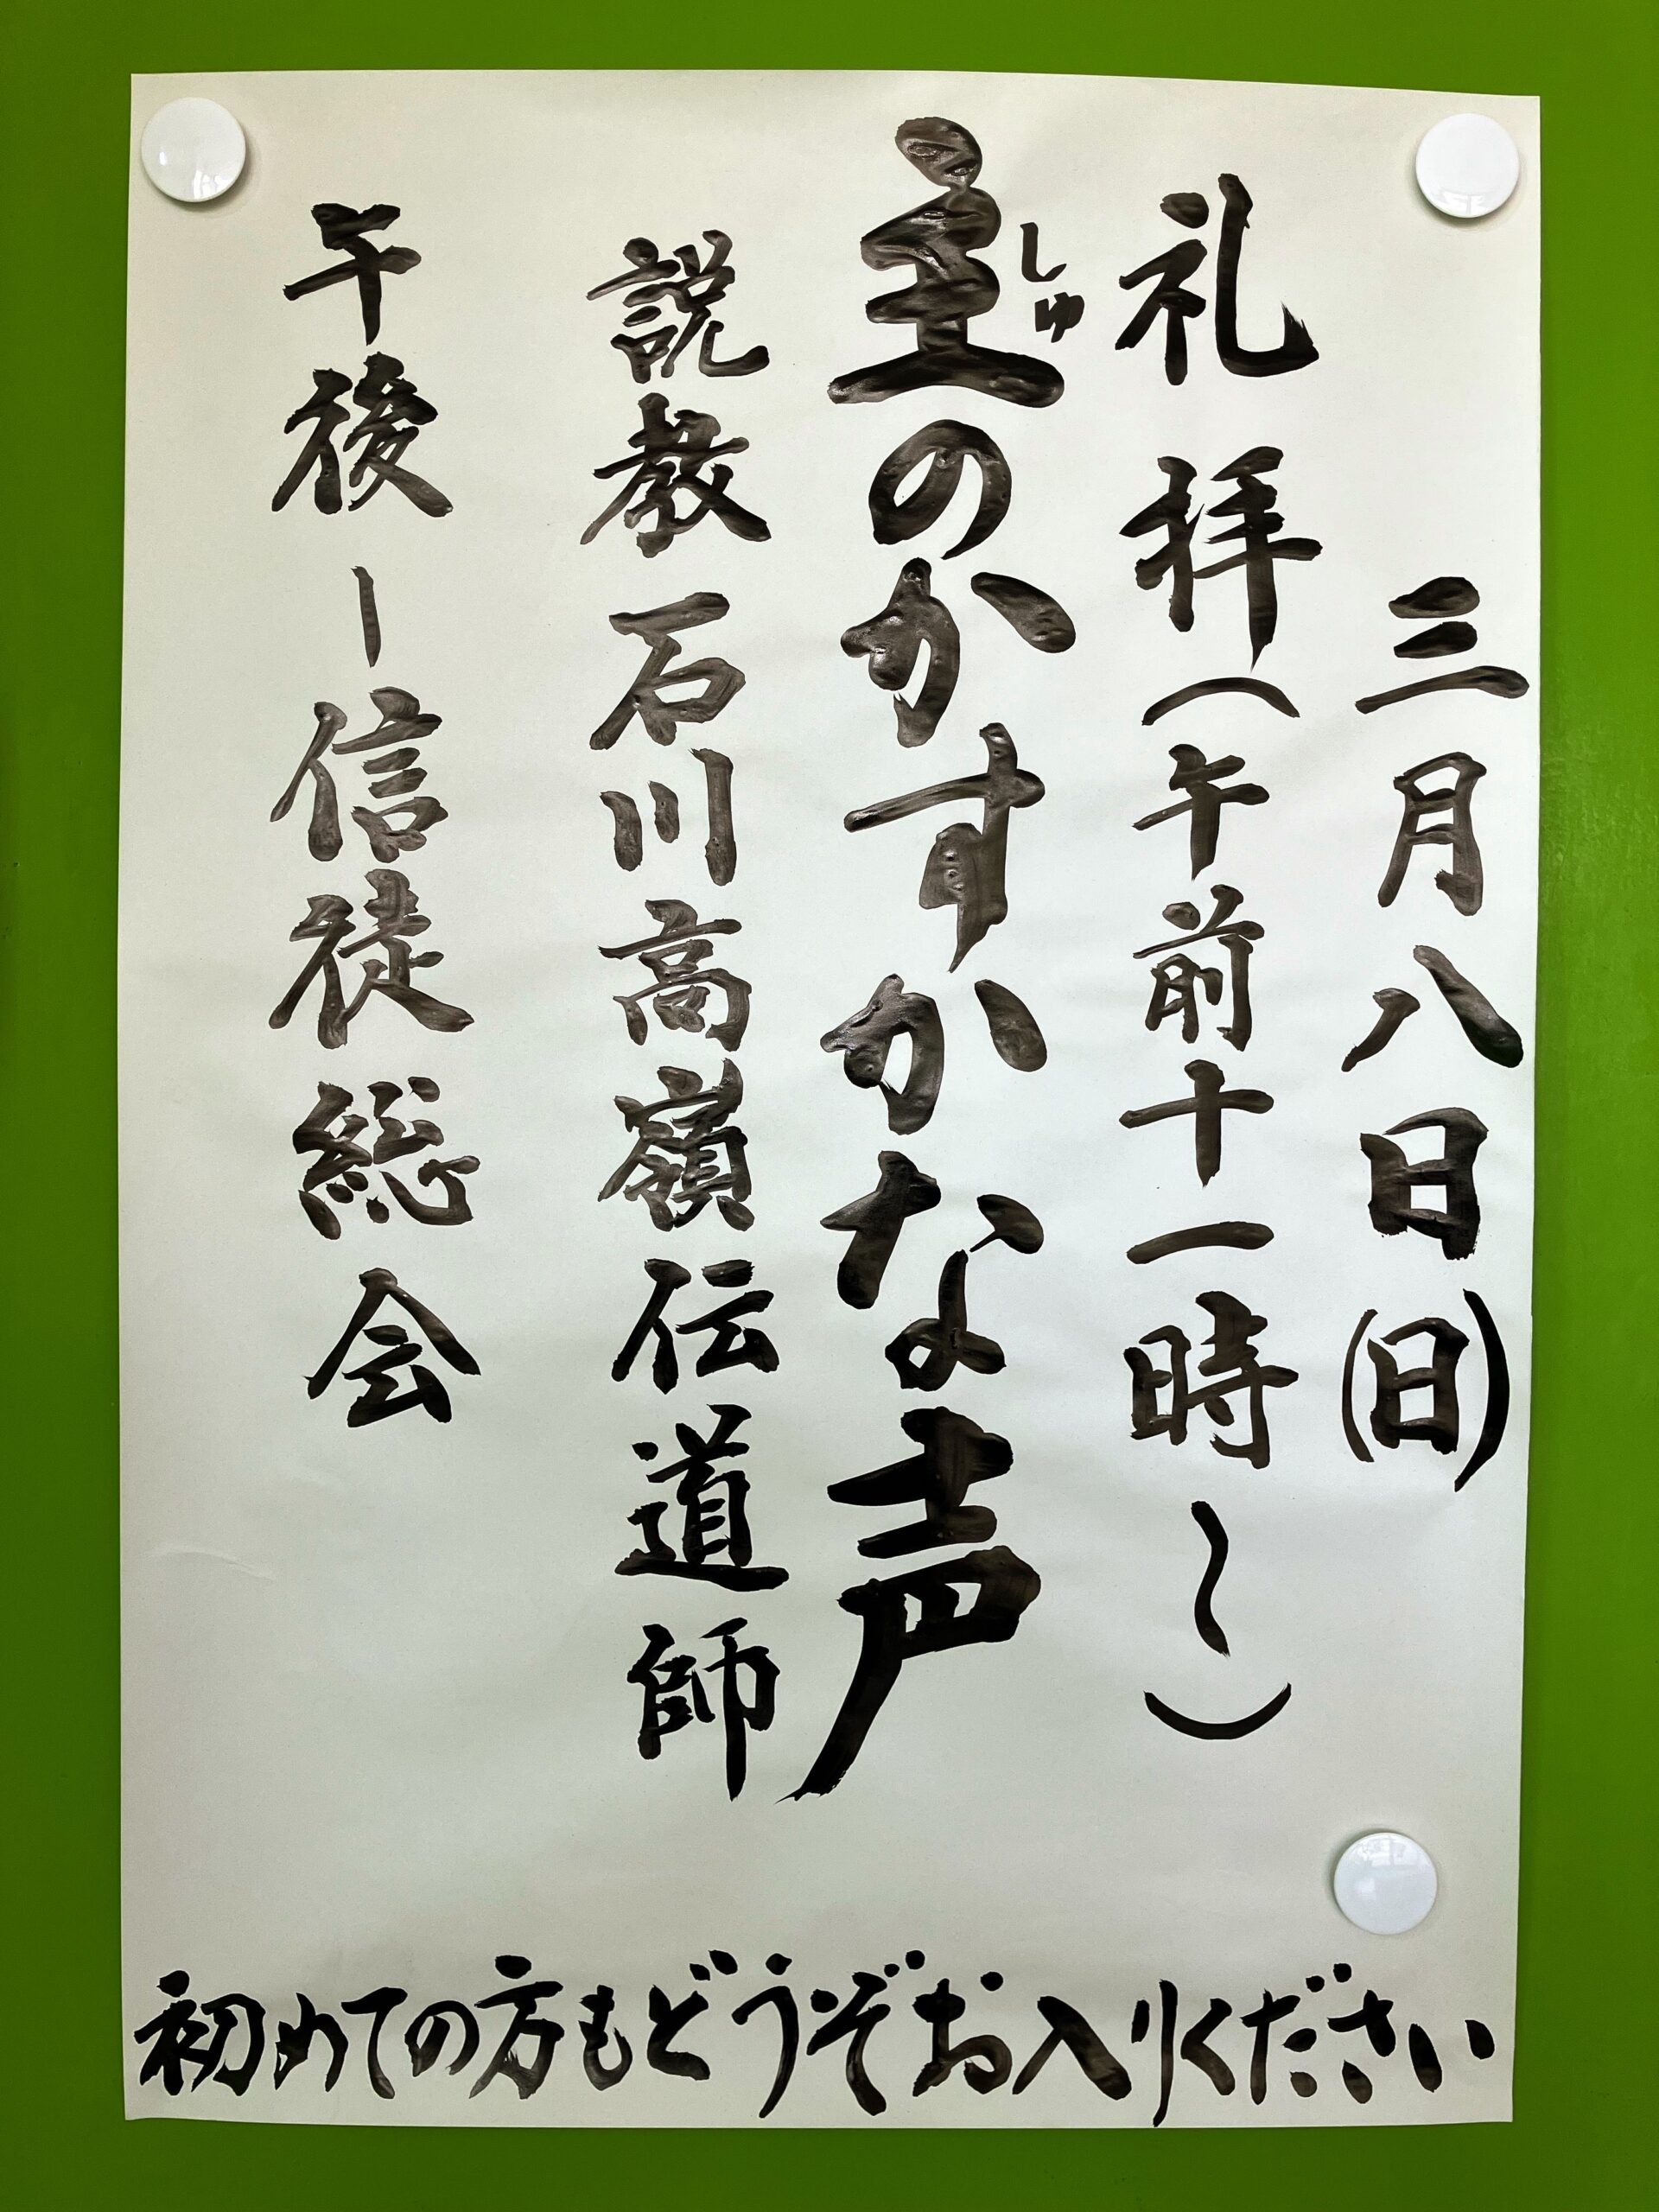 三月八日(日)
礼拝(午前十一時〜)
しゅ
主のかすかな声
説教 石川高嶺伝道師
午後ー信徒総会
初めての方もどうぞお入りください